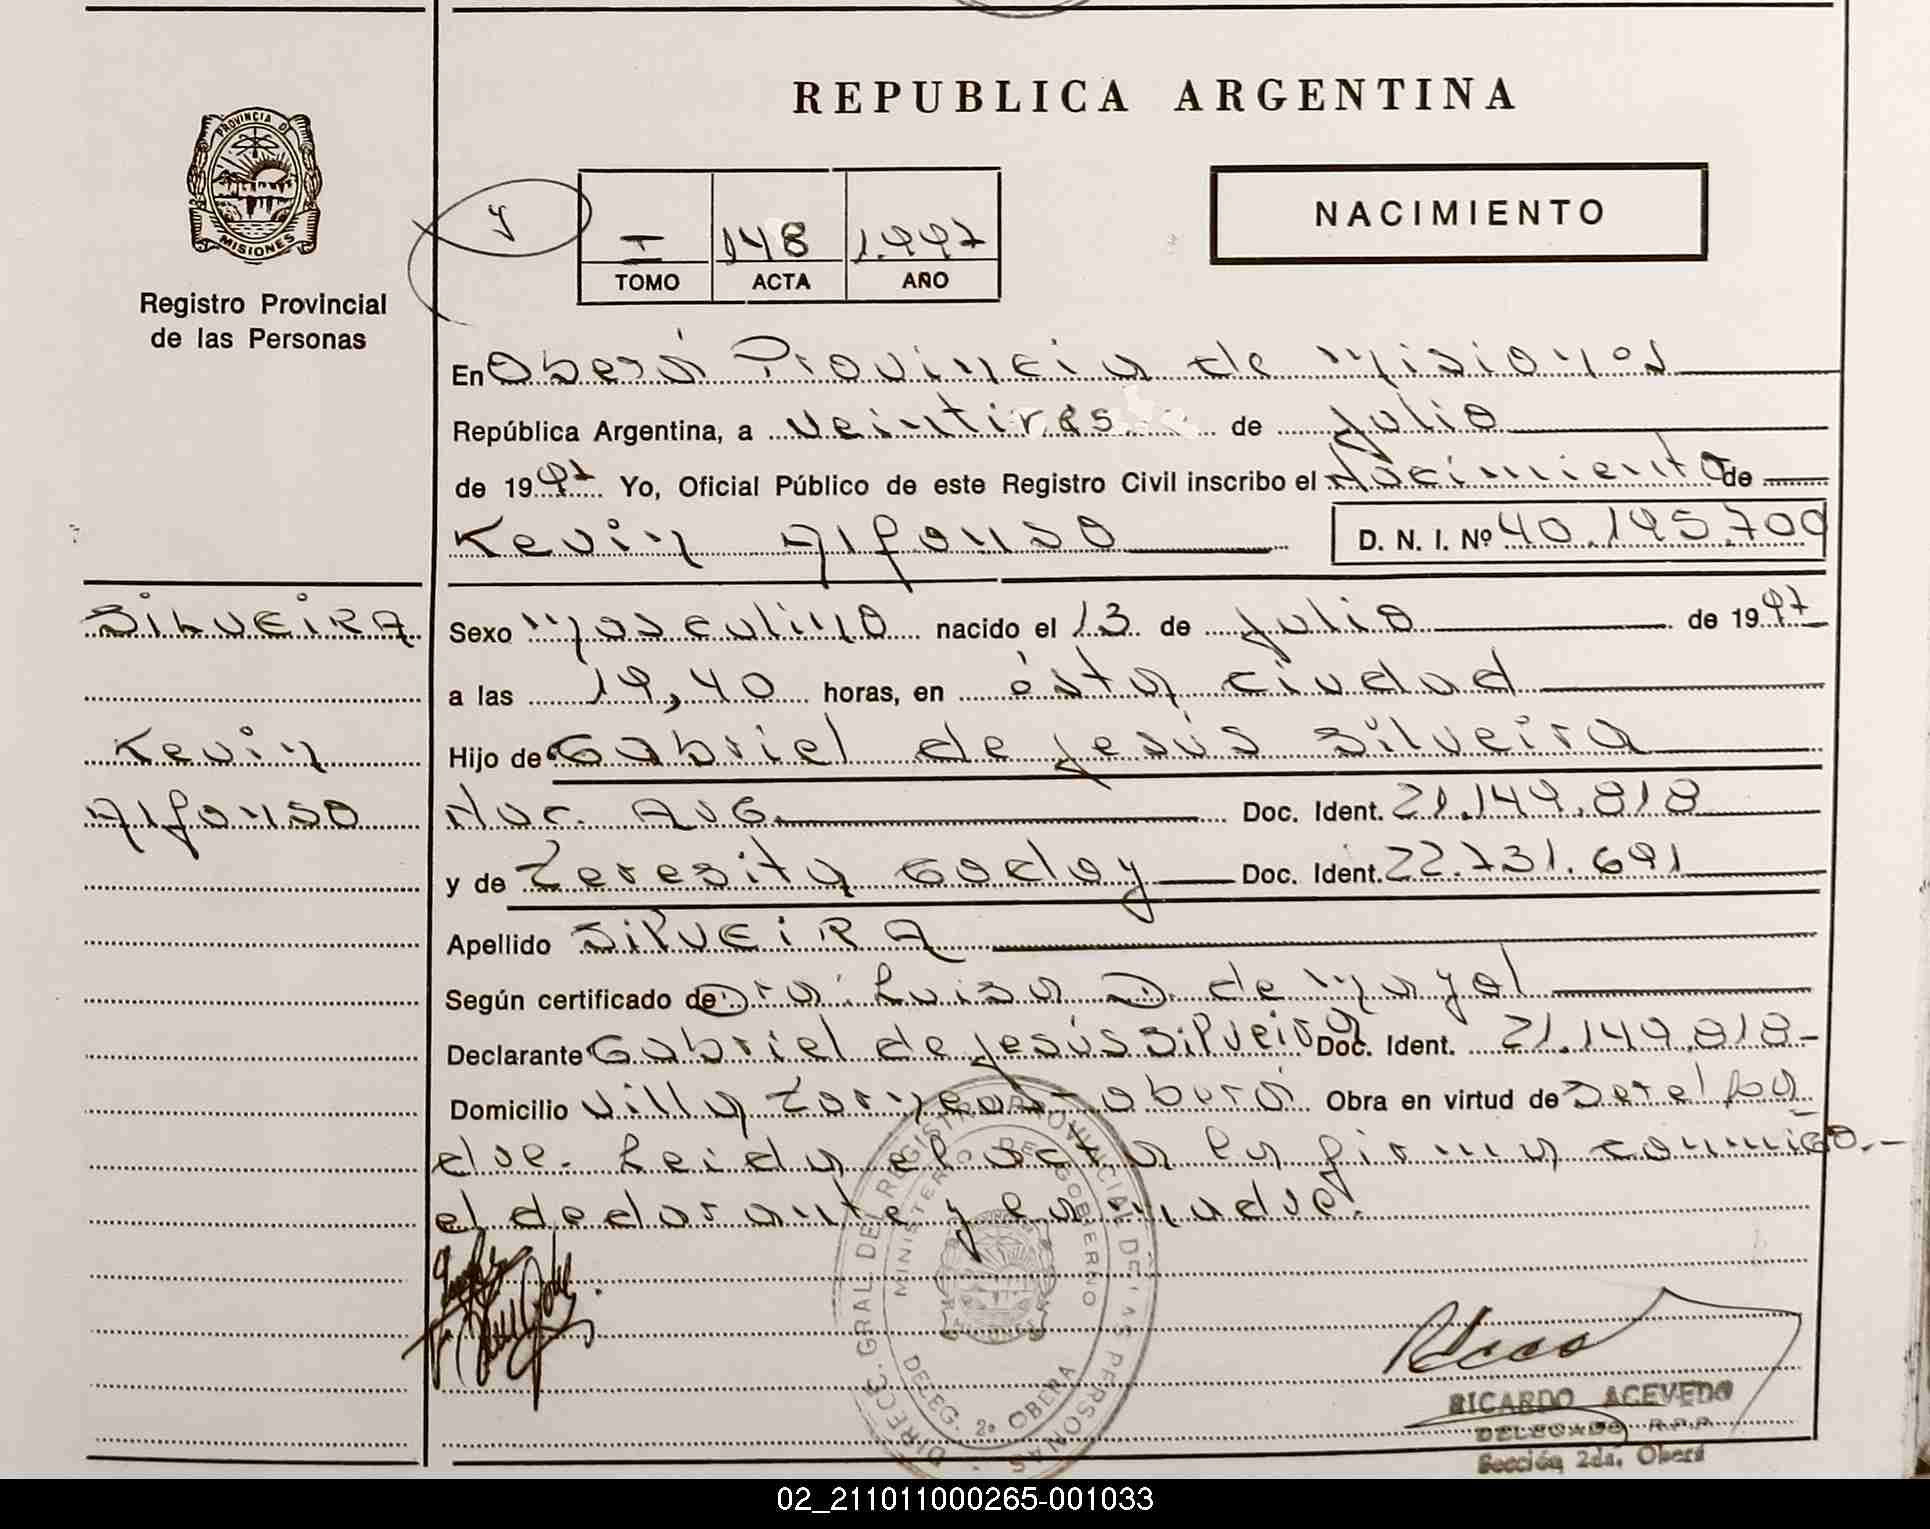 REPUBLICA ARGENTINA
PROVINCIA DE
MISIONES
Registro Provincial
de las Personas
y
I 148 1.997
TOMO ACTA AÑO
NACIMIENTO
En Oberá Provincia de Misiones
República Argentina, a veintirés de Julio
de 1997 Yo, Oficial Público de este Registro Civil inscribo el Nacimiento de
Kevin Alfonso D. N. I. Nº 40.195.700
SILVEIRA
Kevin
Alfonso
Sexo Masculino nacido el 13 de Julio de 1997
a las 19,40 horas, en ésta ciudad
Hijo de Gabriel de Jesús Silveira
Nac. ARG. Doc. Ident. 21.149.818
y de Teresita Godoy Doc. Ident. 22.731.691
Apellido SILVEIRA
Según certificado de Dra. Luisa D. de Mayol
Declarante Gabriel de Jesús Silveira Doc. Ident. 21.149.818-
Domicilio Villa - oberá Obra en virtud de Ser el pa
dre. Leida el acta la firma conmigo.-
el declarante y la madre.
DIRECC. GRAL DEL REGISTRO PROVINCIAL DE LAS PERSONAS
MINISTERIO DE GOBIERNO
MISIONES
DELEG. 2ª OBERA
RICARDO ACEVEDO
DELEGADO R.P.P.
Sección 2da. Oberá
02_211011000265-001033